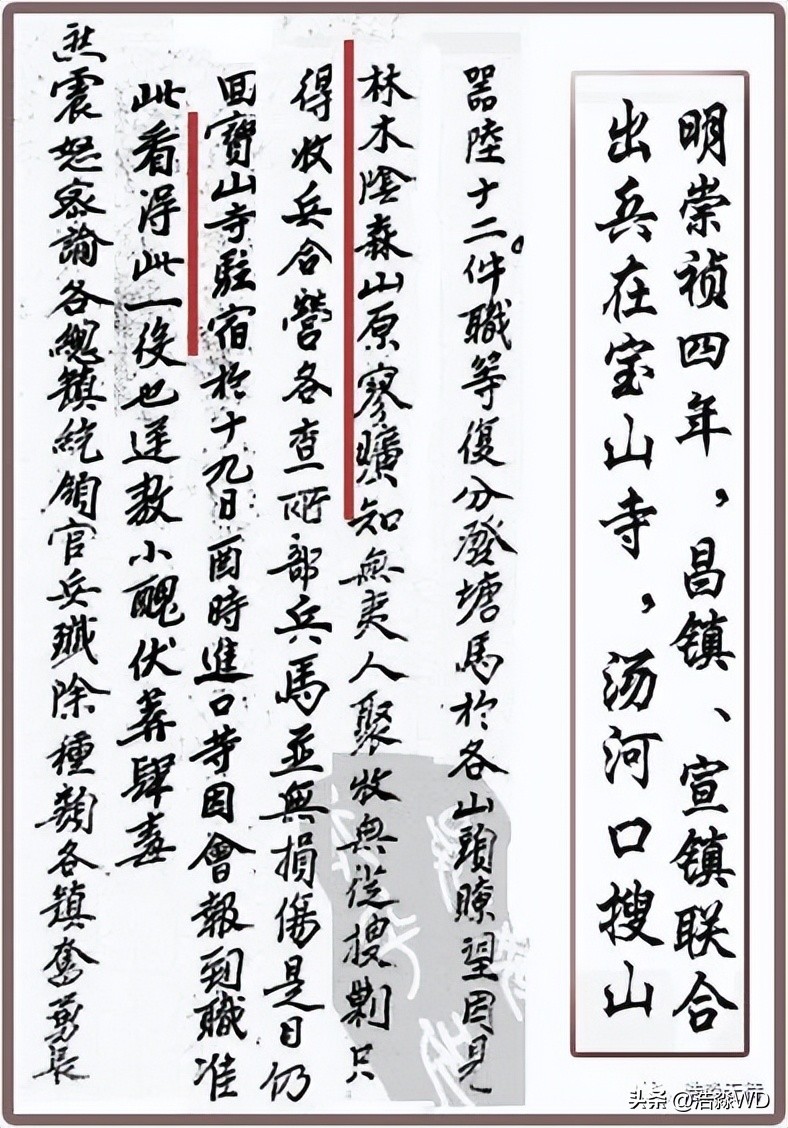 明崇祯四年，昌镇、宣镇联合
出兵在宝山寺，汤河口搜山
器陸十二件職等復分發塘馬於各山頭瞭望因見
林木陰森山原寥曠知無夷人聚牧無從搜剿只
得收兵合營各查所部兵馬並無損傷是日仍
回寶山寺駐宿於十九日酉時進口等因會報到職准
此看得此一役也逆敖小醜伏莽肆毒
震怒密諭各總鎮統領官兵殲除種類各鎮奮勇長
头条 @浩淼WD